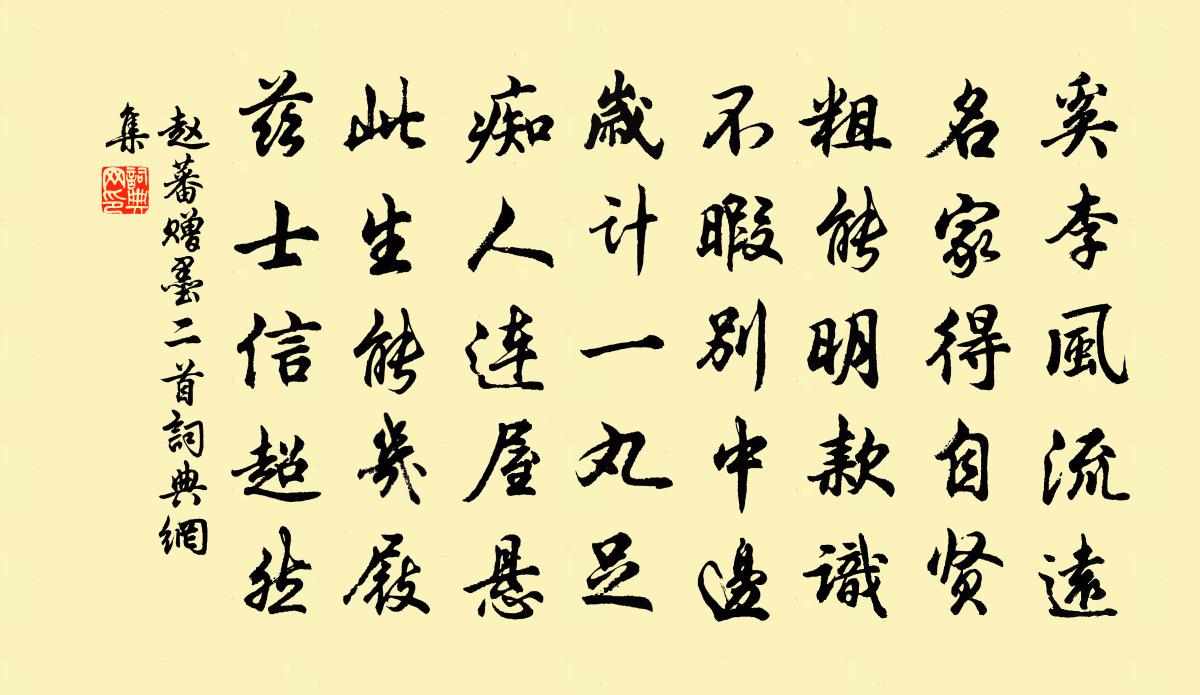 奚李風流遠
名家得自贤
粗能明款識
不暇别中邊
歲計一丸足
痴人連屋懸
此生能幾屐
兹士信超然
赵蕃赠墨二首詞典網
集
詞典網印